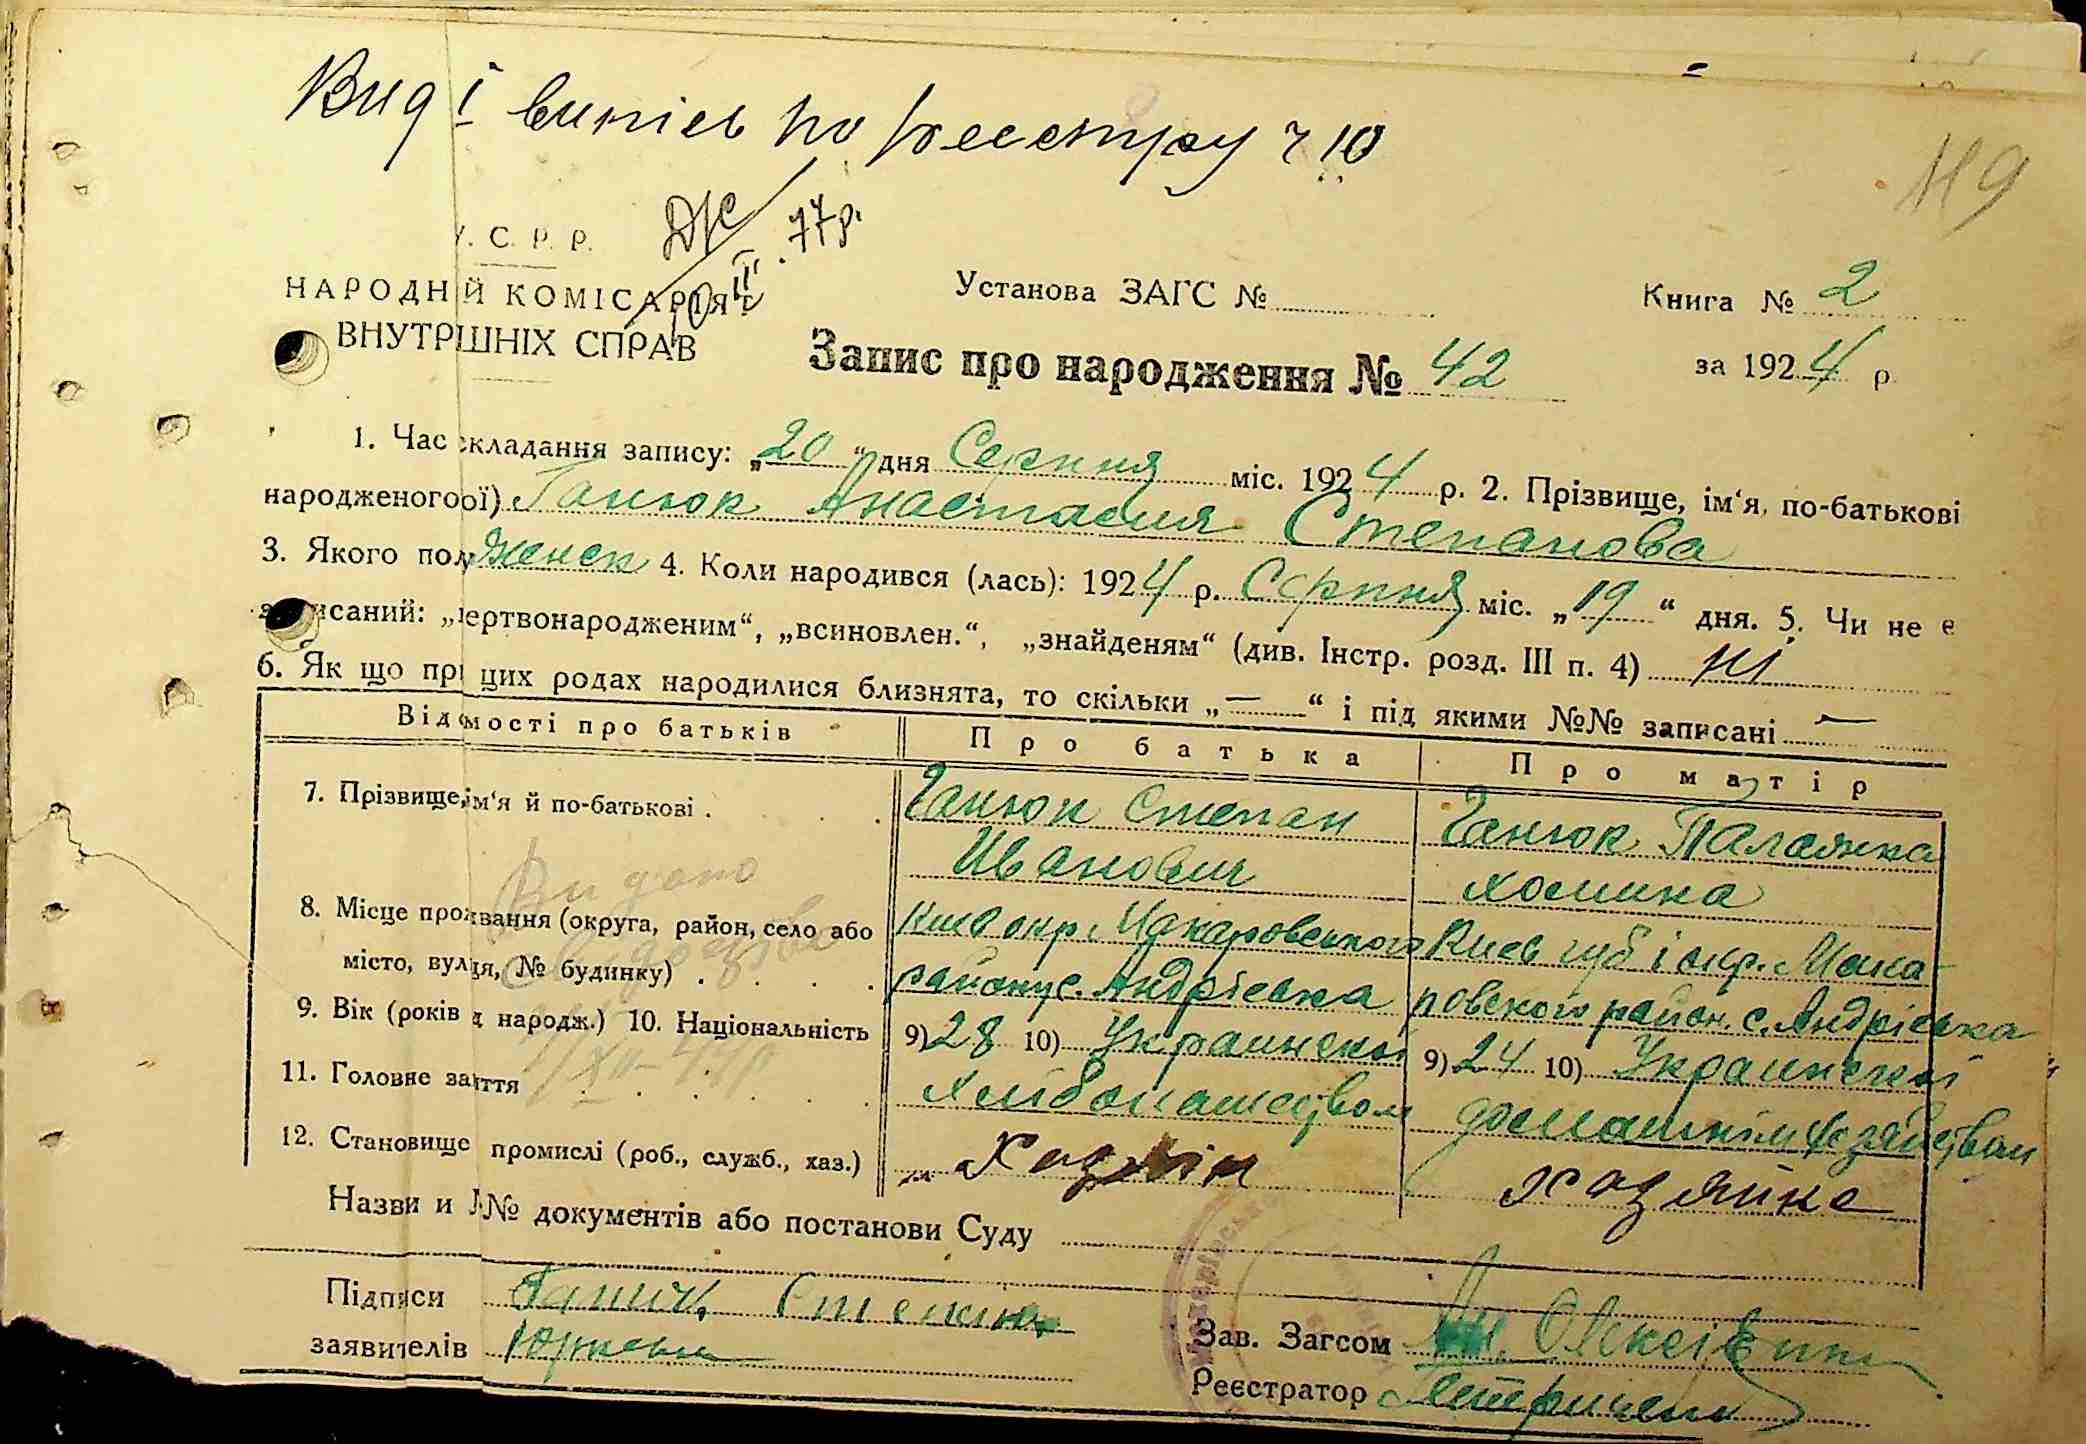 Вид і випісь по реєстру ч 10
119
У. С. Р. Р.
НАРОДНІЙ КОМІСАРІЯТ
ВНУТРІШНІХ СПРАВ
10 III. 77р.
Установа ЗАГС №
Книга № 2
Запис про народження № 42
за 1924 р
1. Час складання запису: „20“ дня Серпня міс. 1924 р. 2. Прізвище, ім‘я, по-батькові
народженого(ої) Ганюк Анастасия Степанова
3. Якого полу женск 4. Коли народився (лась): 1924 р. Серпня міс. „19“ дня. 5. Чи не є
записаний: „мертвонародженим“, „всиновлен.“, „знайденям“ (див. Інстр. розд. III п. 4) ні
6. Як що при цих родах народилися близнята, то скільки „—“ і під якими №№ записані —
Відомості про батьків
Про батька
Про матір
7. Прізвище, ім‘я й по-батькові
Ганюк Степан
Иванович
Ганюк Палажка
Хомина
Видано
8. Місце проживання (округа, район, село або
місто, вулиця, № будинку)
Киев окр. Макаровського
району с. Андрієвка
Киев губ і окр. Мака
ровского район. с. Андрієвка
9. Вік (років од народж.) 10. Національність
9) 28 10) Украинской
9) 24 10) Украинской
11. Головне заняття
Хлібопашеством
домашнім хозяйством
12. Становище в промислі (роб., служб., хаз.)
Хозяін
хозяйка
Назви и №№ документів або постанови Суду
Підписи
заявителів
Зав. Загсом
Реєстратор